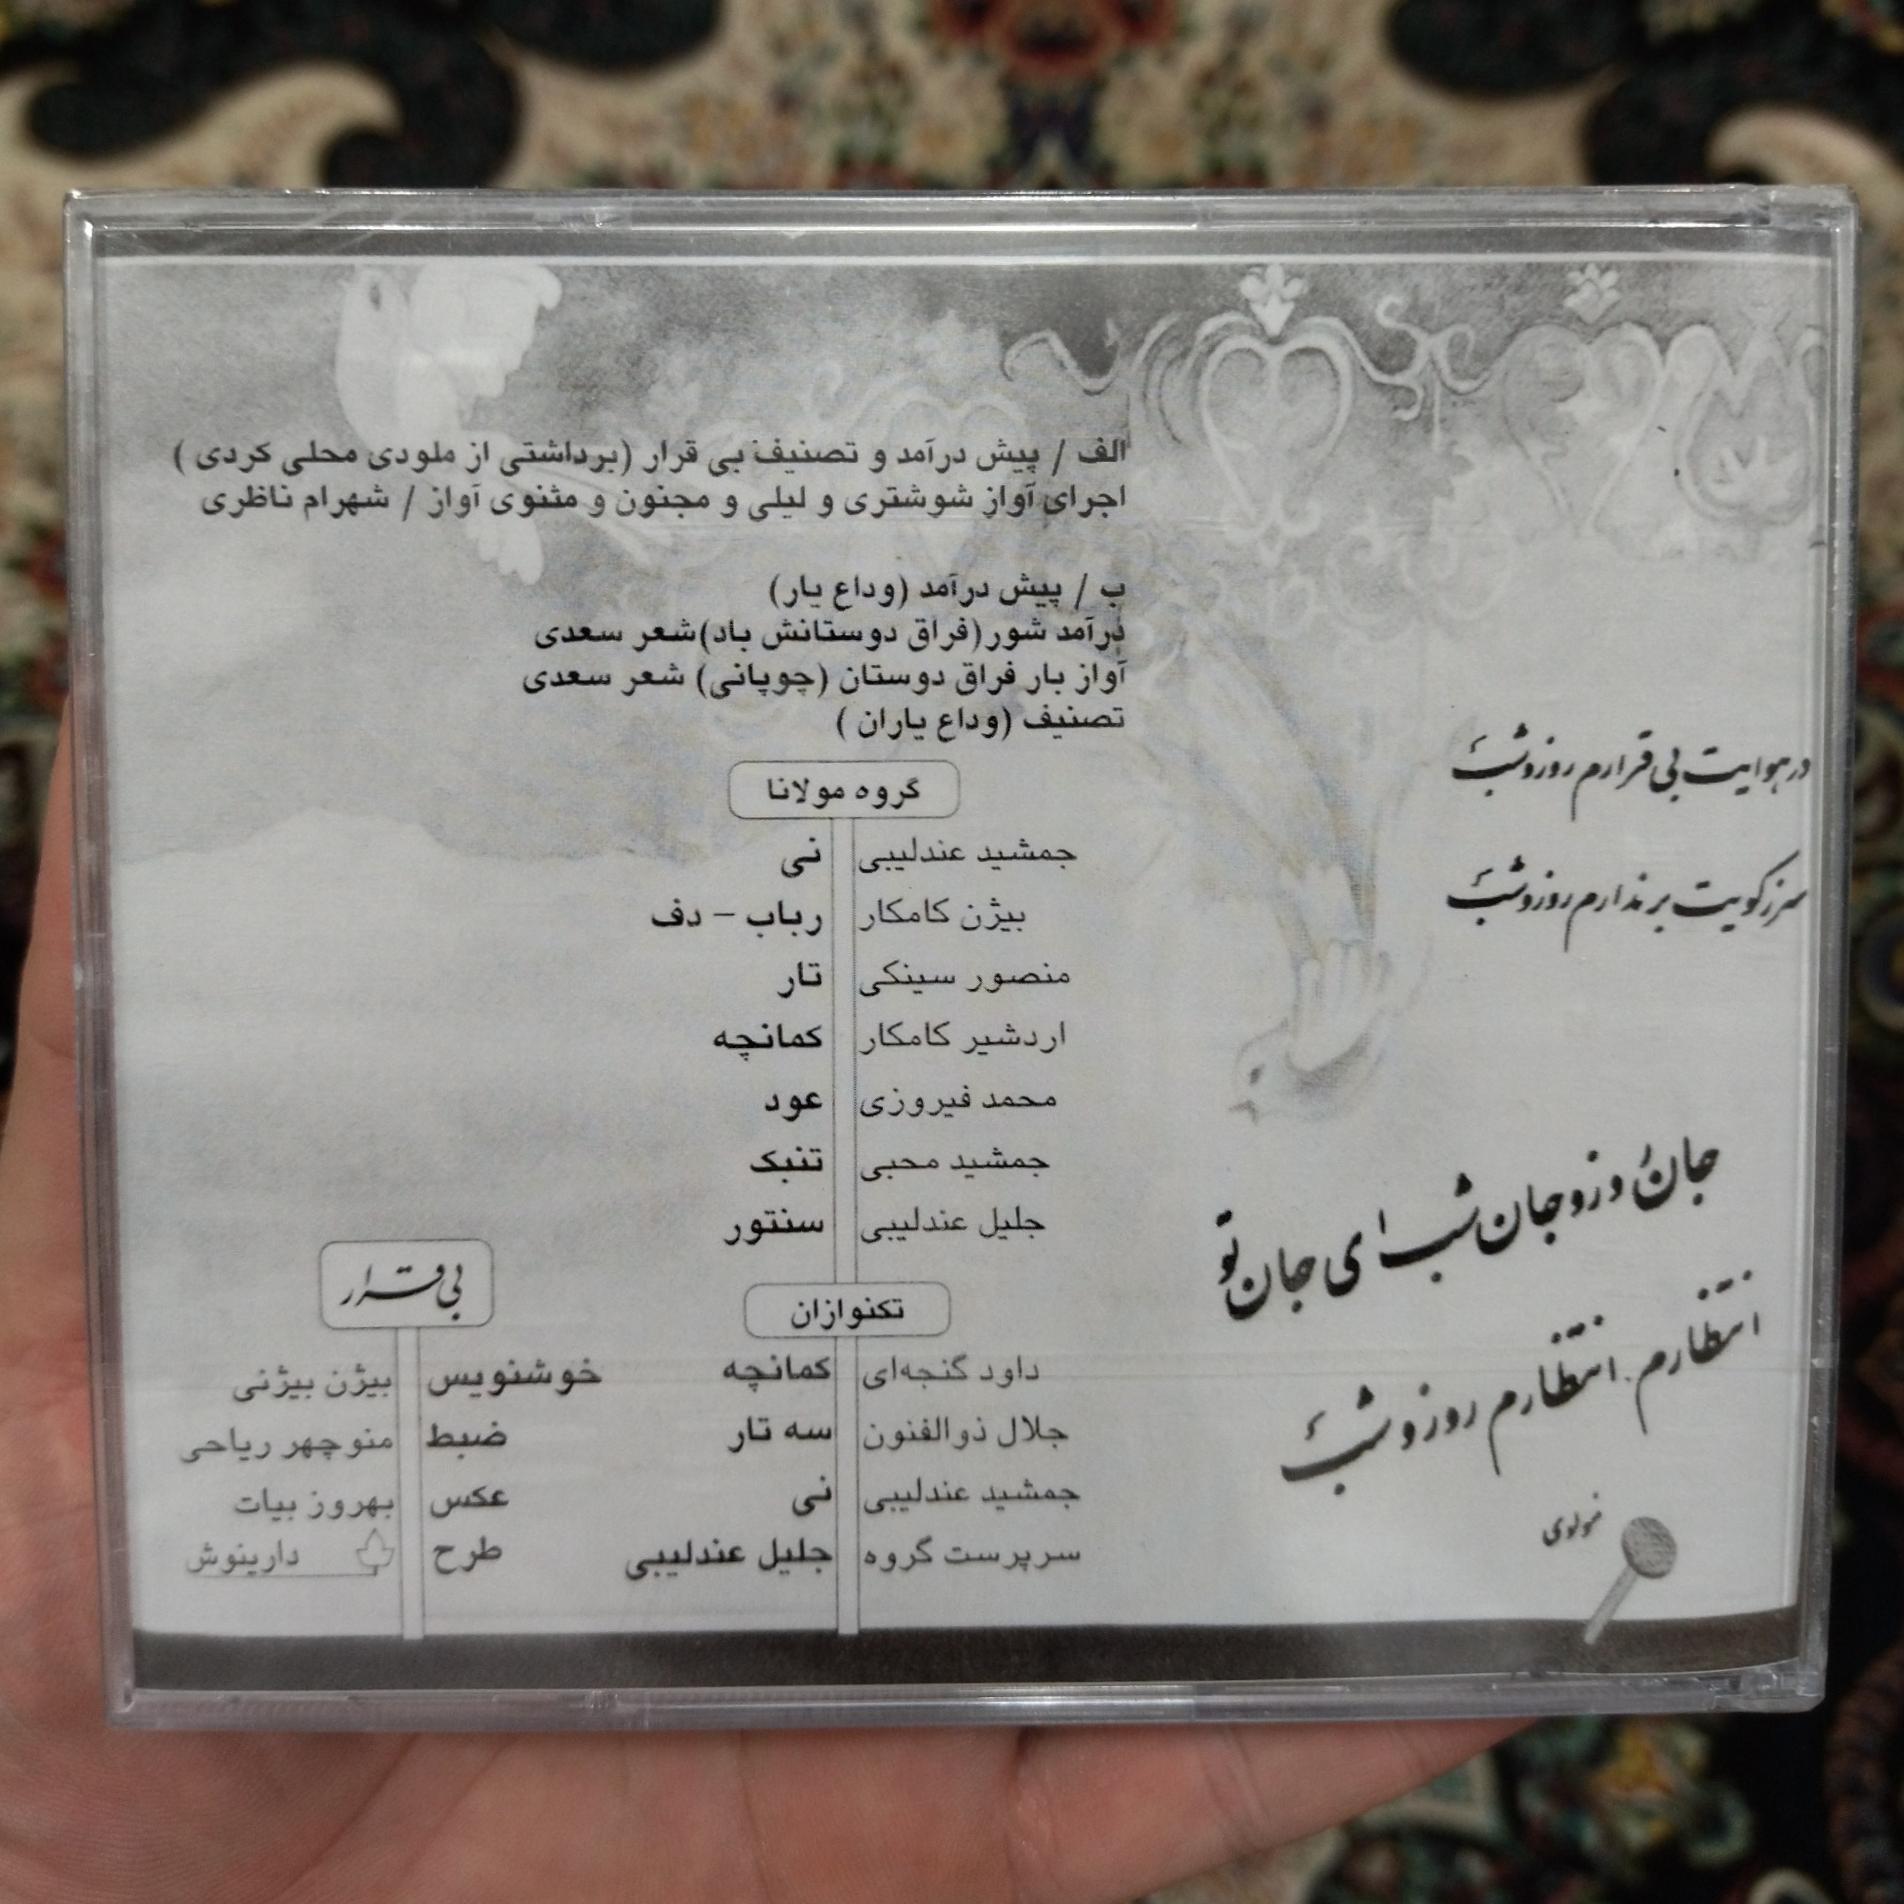 الف / پیش درآمد و تصنیف بی قرار (برداشتی از ملودی محلی کردی )
اجرای آواز شوشتری و لیلی و مجنون و مثنوی آواز / شهرام ناظری
ب / پیش درآمد (وداع یار)
درآمد شور(فراق دوستانش باد)شعر سعدی
آواز بار فراق دوستان (چوپانی) شعر سعدی
تصنیف (وداع یاران )
در هوایت بی قرارم روز و شب
سر ز کویت بر ندارم روز و شب
جان روز و جان شب ای جان تو
انتظارم انتظارم روز و شب
مولوی
گروه مولانا
جمشید عندلیبی نی
بیژن کامکار رباب - دف
منصور سینکی تار
اردشیر کامکار کمانچه
محمد فیروزی عود
جمشید محبی تنبک
جلیل عندلیبی سنتور
تکنوازان
داود گنجه‌ای کمانچه
جلال ذوالفنون سه تار
جمشید عندلیبی نی
سرپرست گروه جلیل عندلیبی
بی قرار
خوشنویس بیژن بیژنی
ضبط منوچهر ریاحی
عکس بهروز بیات
طرح دارینوش